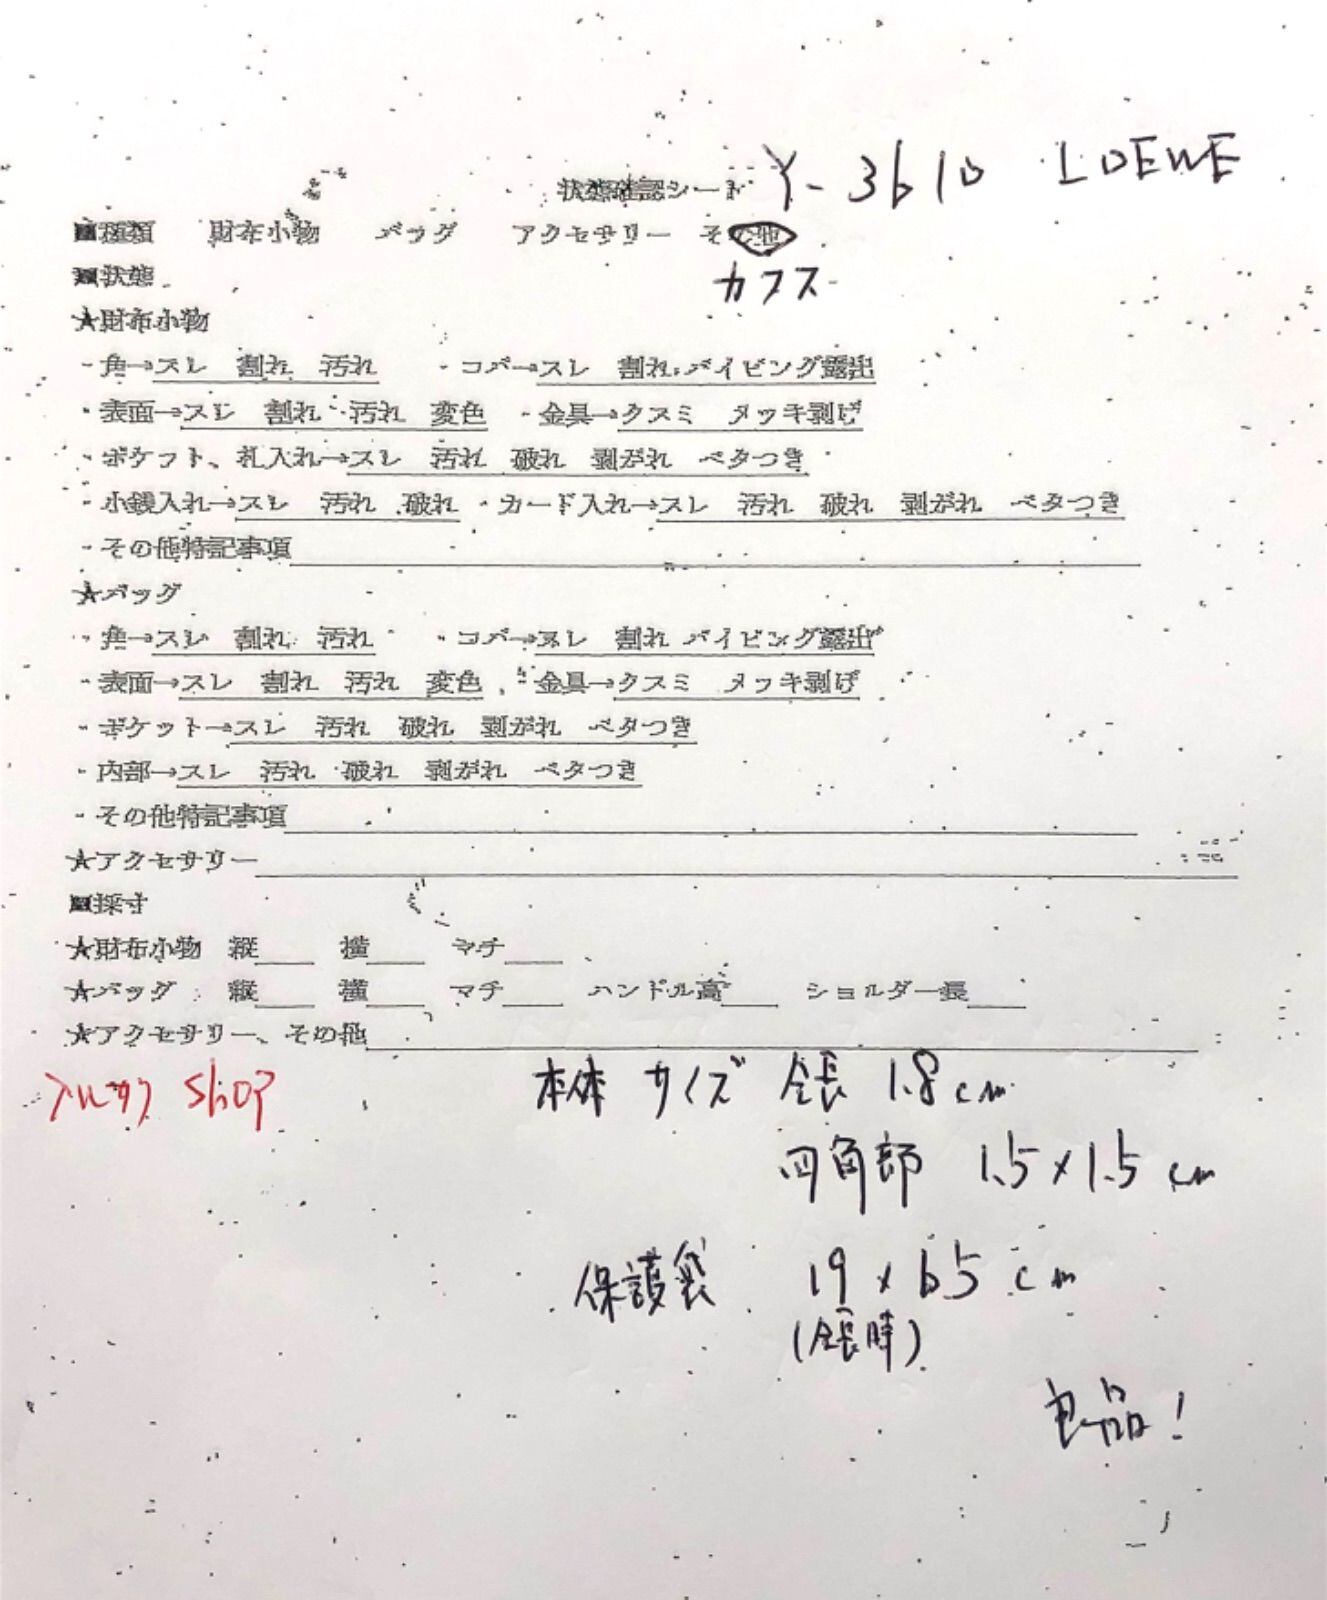 状態確認シート Y-3610 LOEWE
■種類 財布小物 バッグ アクセサリー その他
カフス
■状態
★財布小物
・角→スレ 割れ 汚れ ・コバ→スレ 割れ パイピング露出
・表面→スレ 割れ 汚れ 変色 ・金具→クスミ メッキ剥げ
・ポケット、札入れ→スレ 汚れ 破れ 剥がれ ベタつき
・小銭入れ→スレ 汚れ 破れ ・カード入れ→スレ 汚れ 破れ 剥がれ ベタつき
・その他特記事項
★バッグ
・角→スレ 割れ 汚れ ・コバ→スレ 割れ パイピング露出
・表面→スレ 割れ 汚れ 変色 ・金具→クスミ メッキ剥げ
・ポケット→スレ 汚れ 破れ 剥がれ ベタつき
・内部→スレ 汚れ 破れ 剥がれ ベタつき
・その他特記事項
★アクセサリー
■採寸
★財布小物 縦 横 マチ
★バッグ 縦 横 マチ ハンドル高 ショルダー長
★アクセサリー、その他
SHOP
本体 サイズ 全長 1.8cm
四角部 1.5×1.5cm
保護袋 19×6.5cm
(全長時)
良品!